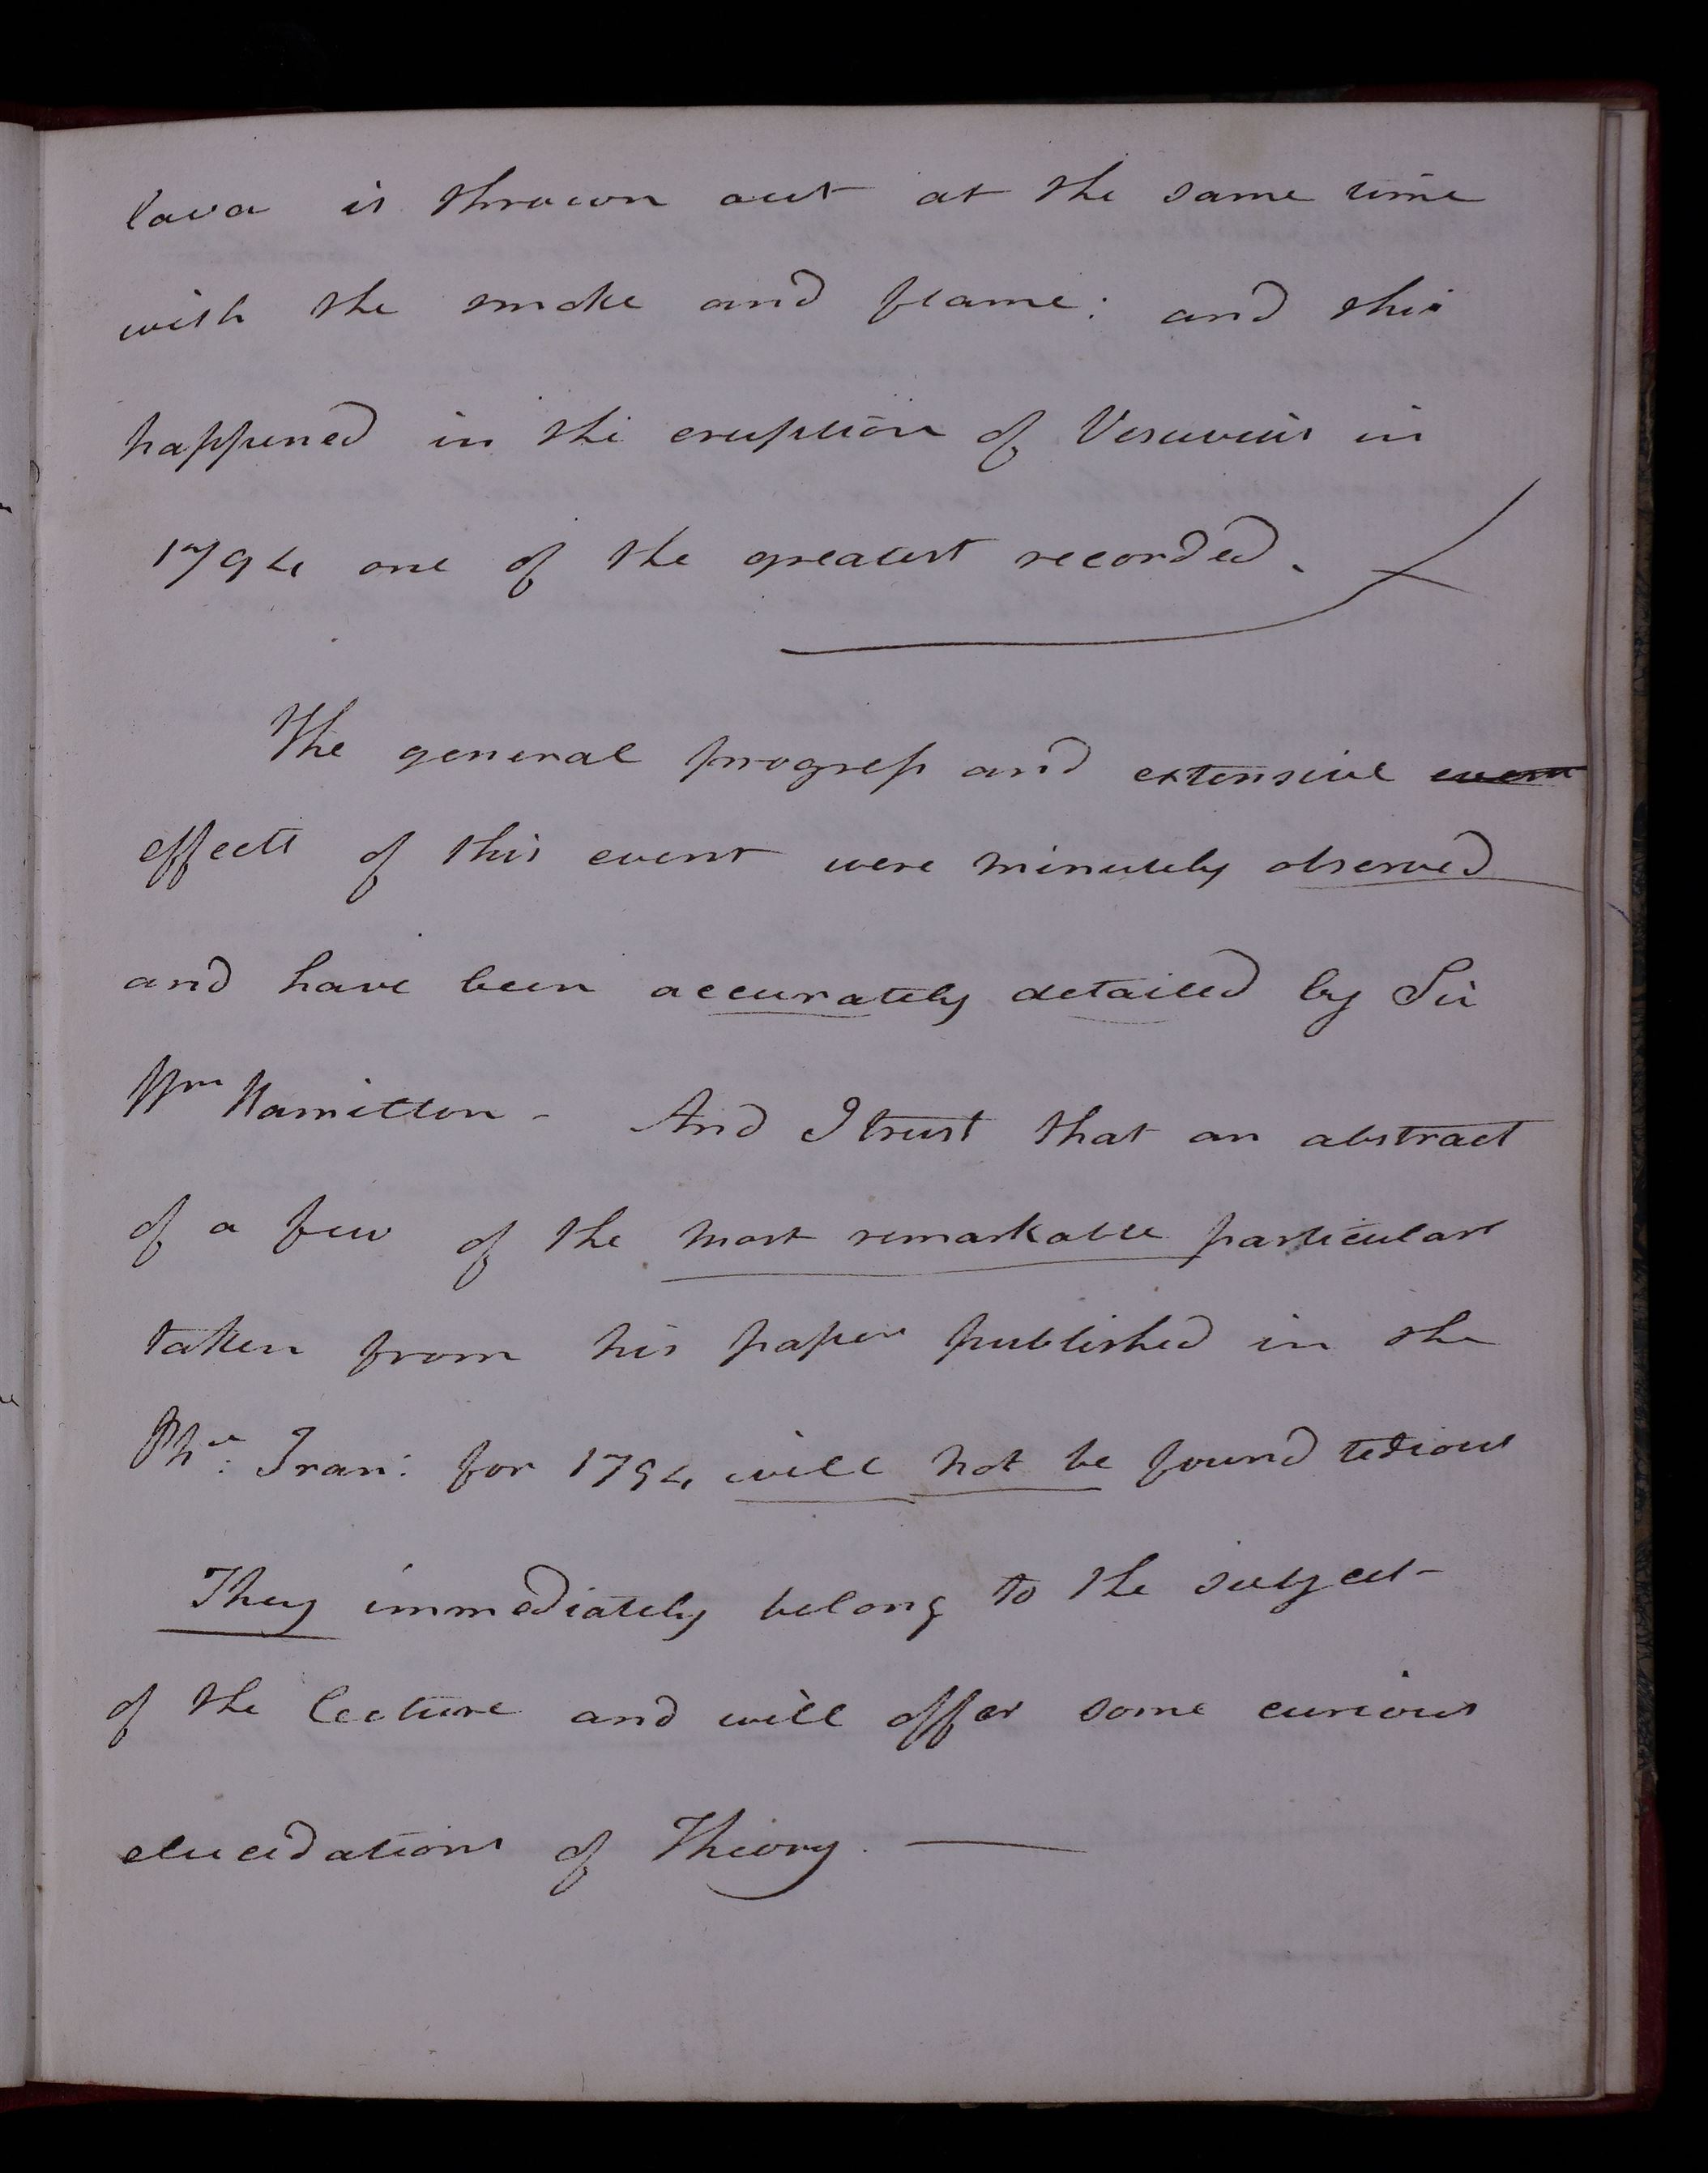 lava is thrown out at the same time
with the smoke and flame: and this
happened in the eruption of Vesuvius in
1794 one of the greatest recorded.
The general progress and extensive event
effects of this event were minutely observed
and have been accurately detailed by Sir
Wm Hamilton - And I trust that an abstract
of a few of the most remarkable particulars
taken from his paper published in the
Tran: for 1794 will not be found tedious
They immediately belong to the subject -
of the lecture and will offer some curious
elucidations of Theory. —